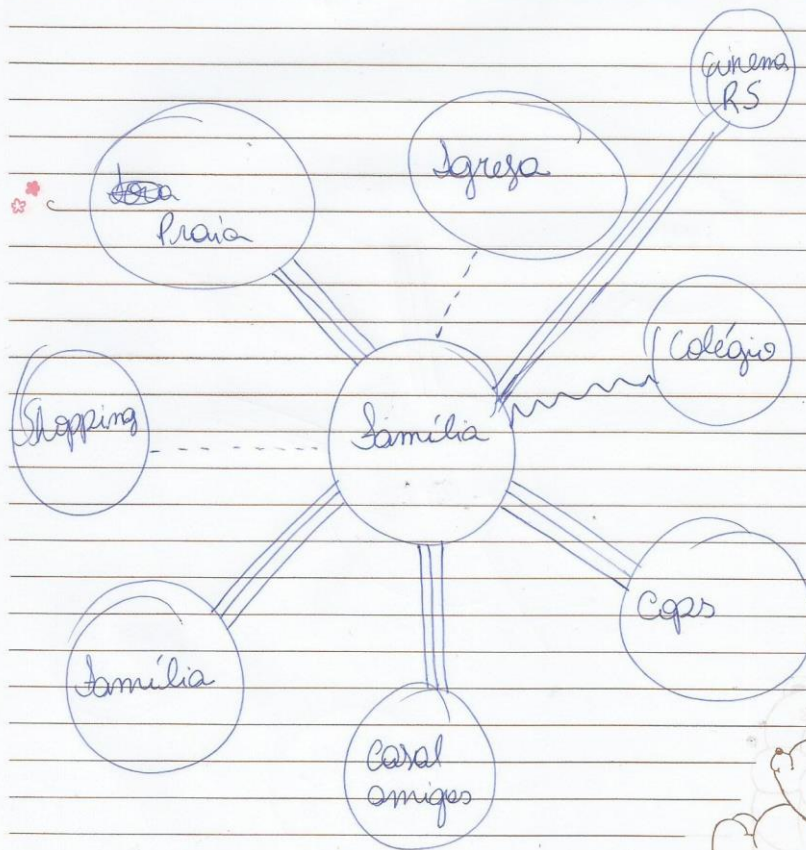 Cinema
RS
Igreja
Praia
Colégio
Shopping
Família
Caps
Família
Casal
amigos